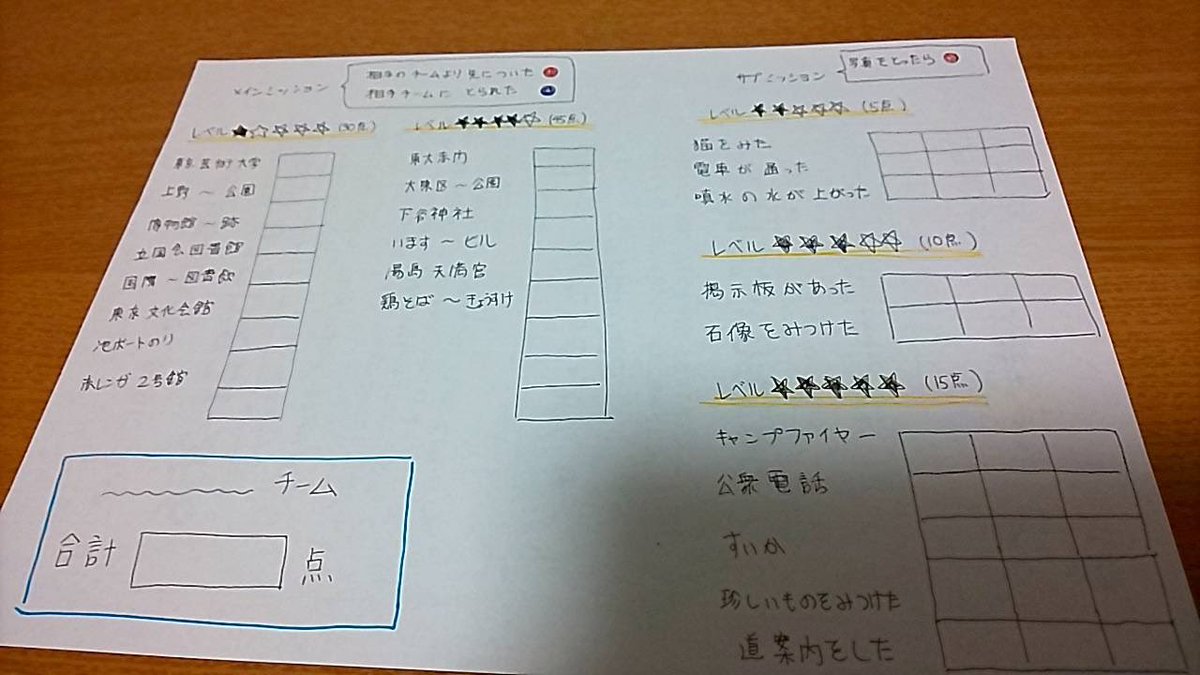 メインミッション
相手のチームより先についた
相手チームに とられた
レベル ★☆☆☆☆ (30点)
東京芸術大学
上野 〜 公園
博物館 〜 跡
立国会図書館
国際 〜 図書館
東京文化会館
池ボートのり
赤レンガ2号館
レベル ★★★★☆ (45点)
東大案内
大東区 〜 公園
下谷神社
います 〜 ビル
湯島天満宮
鶏そば 〜 きょうすけ
サブミッション
写真をとったら
レベル ★★☆☆☆ (5点)
猫をみた
電車が通った
噴水の水が上がった
レベル ★★★☆☆ (10点)
掲示板があった
石像をみつけた
レベル ★★★★★ (15点)
キャンプファイヤー
公衆電話
すいか
珍しいものをみつけた
道案内をした
チーム
合計 点